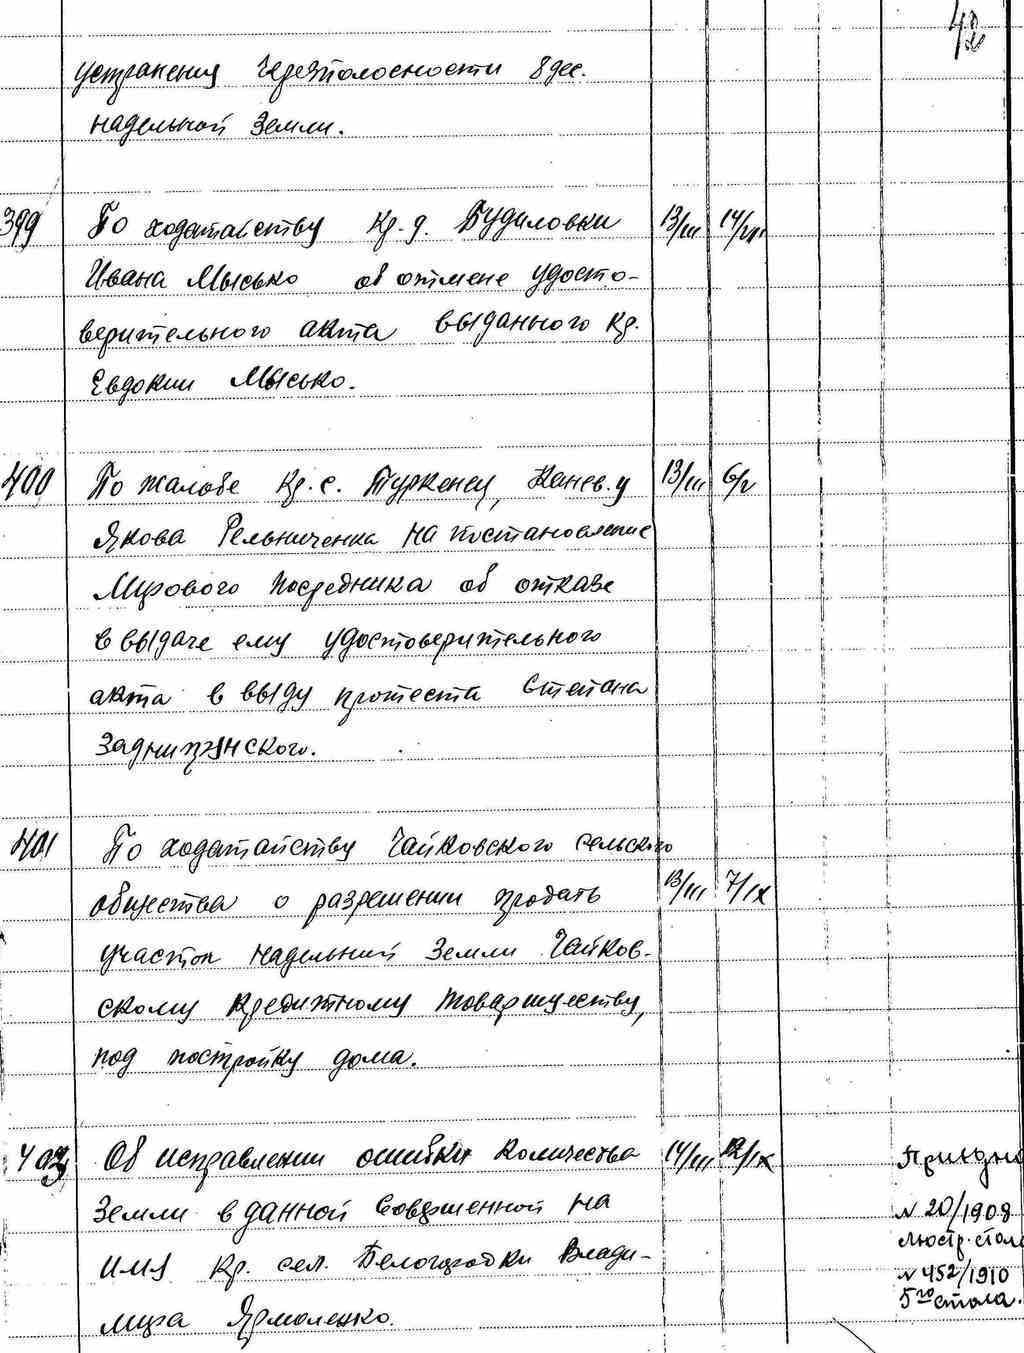 устранения черезполосности 8 дес.
надельной земли.
399 По ходатайству кр. д. Будиловки 13/III 14/VII
Ивана Мысько об отмене удосто-
верительного акта выданного кр.
Евдокии Мысько.
400 По жалобе кр. с. Туркенец, Канев. у 13/III 6/V
Якова Рельниченка на постановление
Мирового Посредника об отказе
в выдаче ему удостоверительного
акта в виду протеста Степана
Заднипрянского.
401 По ходатайству Чайковского сельского
общества о разрешении продать 13/III 7/IX
участок надельной земли Чайков-
скому кредитному товариществу,
под постройку дома.
402 Об исправлении ошибки количества 14/III 12/IX
земли в данной совершенной на
N 20/1908
имя кр. сел. Белогородки Влади-
люстр. стол
N 452/1910
мира Ярмоленко.
5го стола.